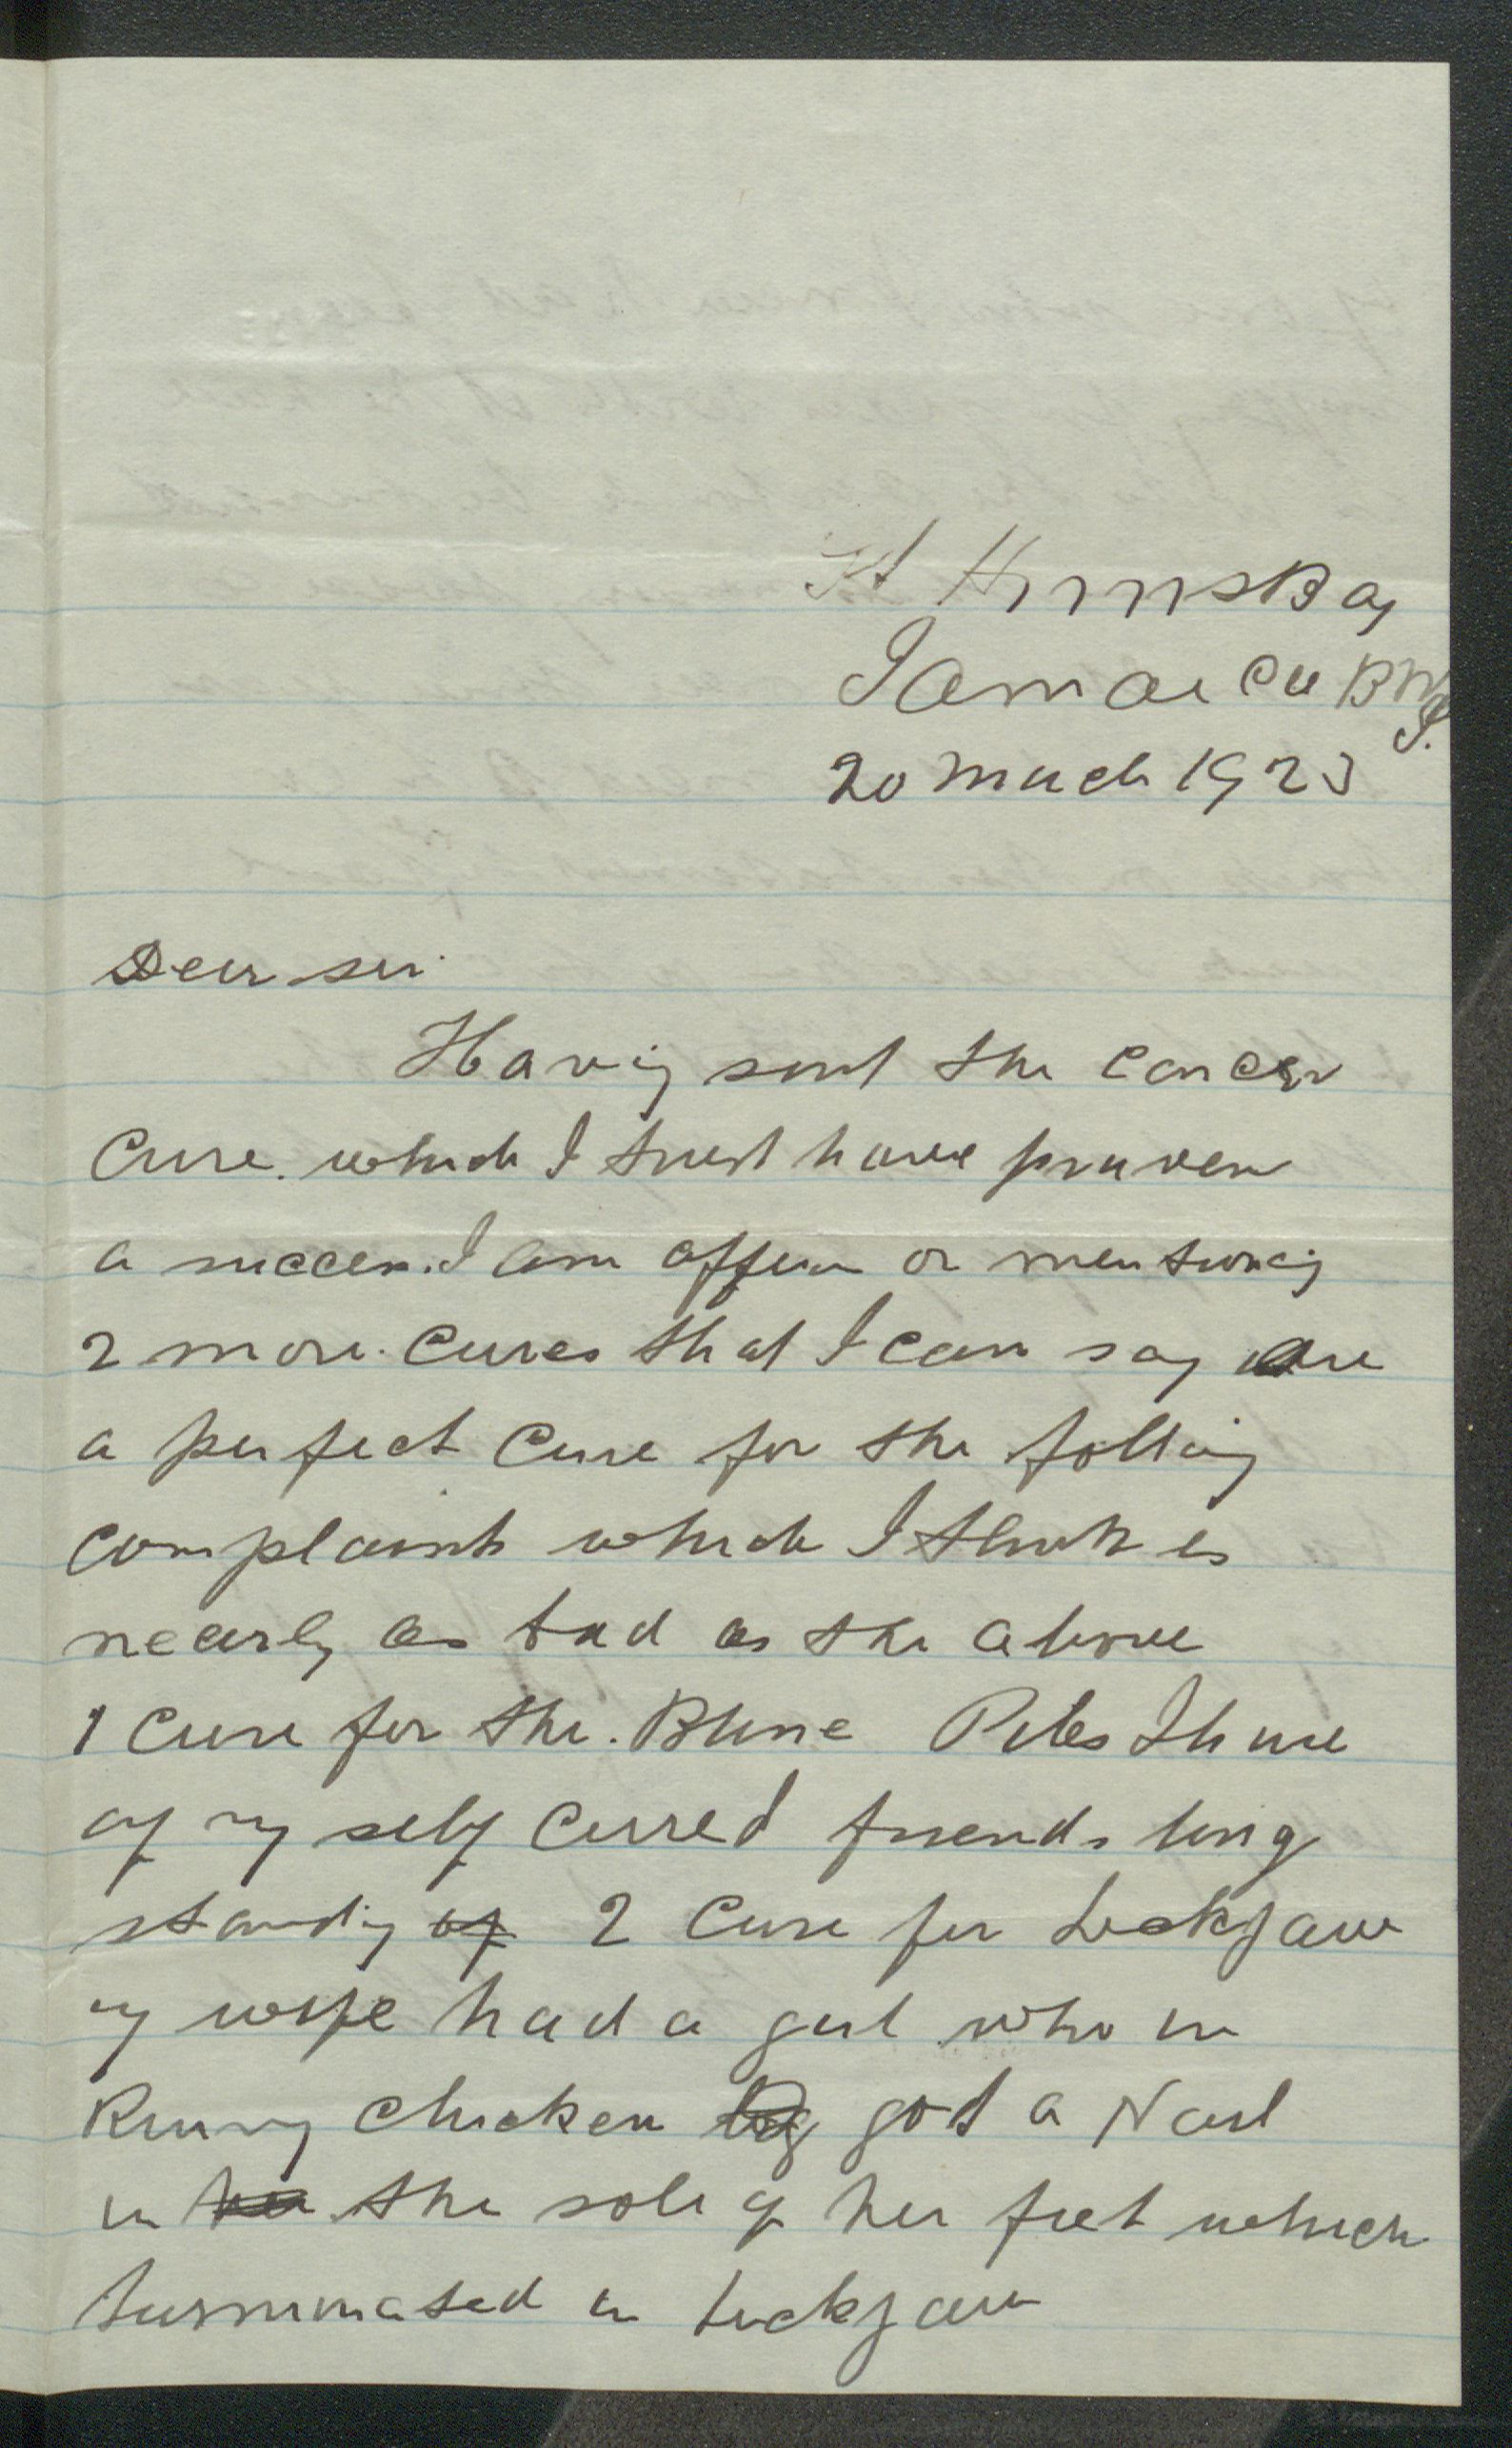 St Anns Bay
Jamaica BWI.
20 March 1923
Dear sir
Having sent the cancer
Cure. which I trust have proven
a success. I am offern or mentioning
2 more. Cures that I can say are
a perfect Cure for the folling
complaints which I think is
nearly as bad as the above
1 Cure for the. Piles I have
my self Curred friends long
standing of 2 Cure for Lockjaw
my wife had a girl who in
Runing chicken got a Nail
in her the sole of her feet which
turminated in Lockjaw